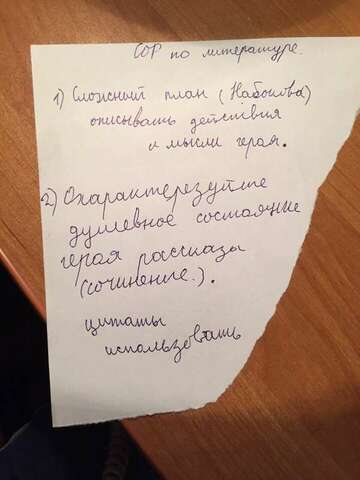 СОР по литературе.
1) Сложный план (Набокова)
описывать действия
и мысли героя.
2) Охарактерезуйте
душевное состояние
героя рассказы
(сочинение.).
цитаты
использовать